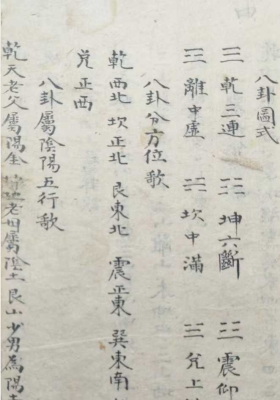 八卦圖式
☰ 乾三連 ☷ 坤六斷 ☳ 震仰
☲ 離中虛 ☵ 坎中滿 ☱ 兌上
八卦分方位歌
乾西北 坎正北 艮東北 震正東 巽東南
兌正西
八卦屬陰陽五行歌
乾天老父屬陽金 坤地老母屬陰土 艮山少男為陽土